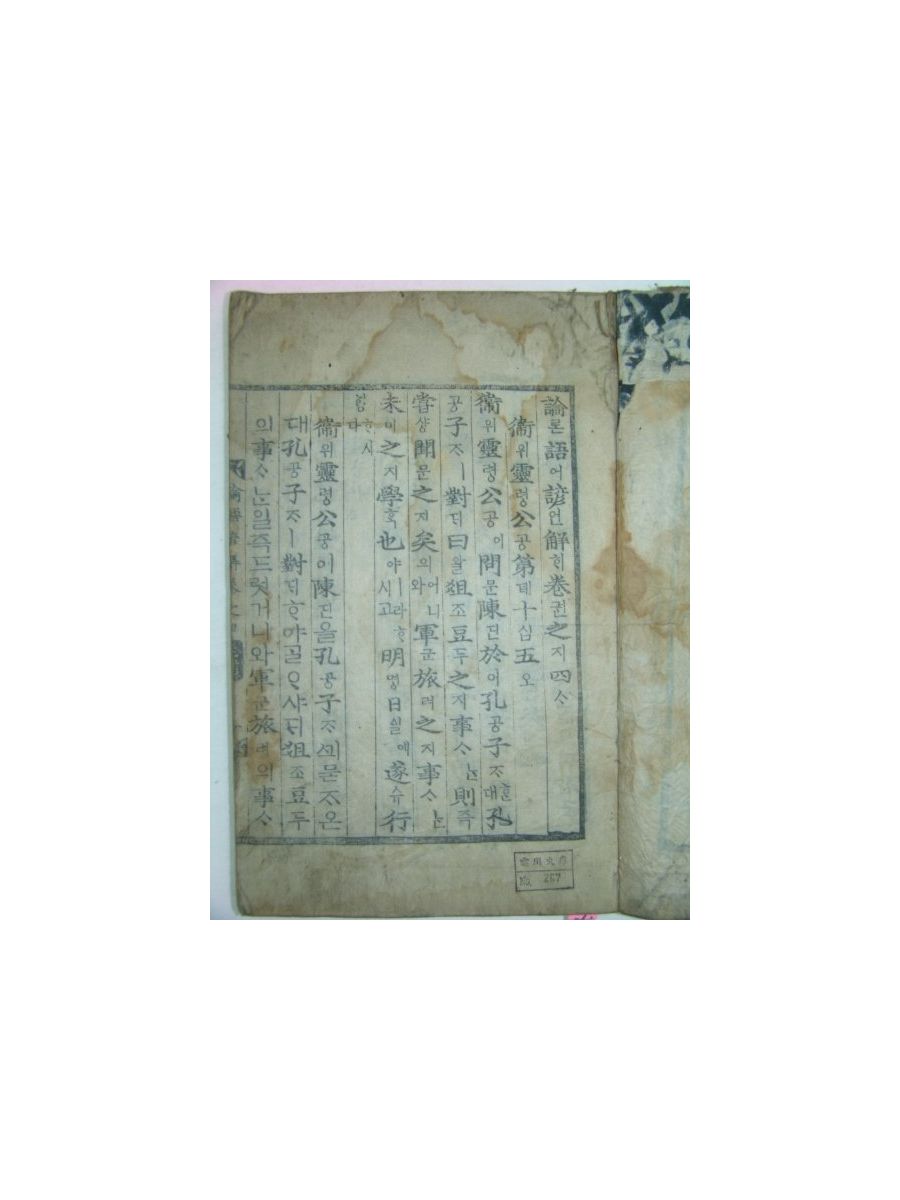 論론語어諺언解ᄒᆡ卷권之지四ᄉᆞ
衛위靈령公공第뎨十십五오
衛위靈령公공이問문陳딘於어孔공子ᄌᆞᄒᆞᆫ대孔
공子ᄌᆞㅣ對ᄃᆡ曰왈俎조豆두之지事ᄉᆞᄂᆞᆫ則즉
嘗샹聞문之지矣의어니와軍군旅려之지事ᄉᆞᄂᆞᆫ
未미之지學ᄒᆞᆨ也야ㅣ라ᄒᆞ시고明명日일에遂슈行
ᄒᆡᆼᄒᆞ시다
衛위靈령公공이陳딘을孔공子ᄌᆞᄭᅴ묻ᄌᆞ온
대孔공子ᄌᆞㅣ對ᄃᆡᄒᆞ야ᄀᆞᆯᄋᆞ샤ᄃᆡ俎조豆두
의事ᄉᆞᄂᆞᆫ일즉드럿거니와軍군旅려의事ᄉᆞ
No. 267